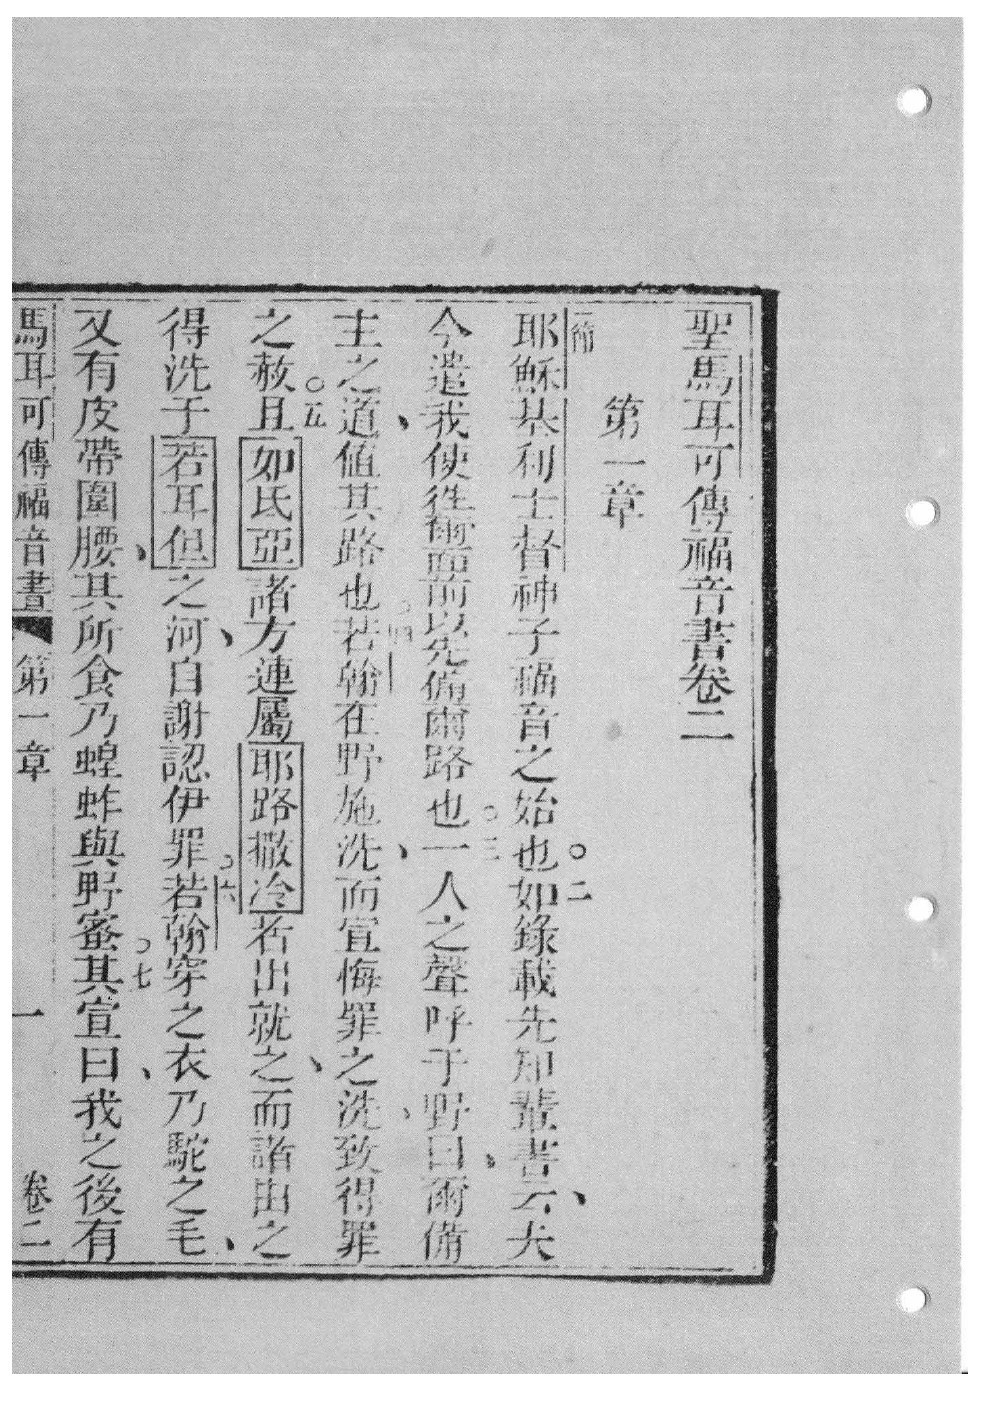 聖馬耳可傳福音書卷二
第一章
一節耶穌基利士督神子福音之始也○二如錄載先知輩書云、夫
今遣我使徃爾面前以先備爾路也○三一人之聲呼于野曰、爾備
主之道、値其路也○四若翰在野施洗、而宣悔罪之洗、致得罪
之赦○五且如氏亞諸方連屬耶路撒冷若出就之、而諸由之
得洗于若耳但之河、自謝認伊罪○六若翰穿之衣乃駝之毛、
又有皮帶圍腰、其所食乃蝗蚱與野蜜○七其宣曰、我之後有
馬耳可傳福音書 第一章 一 卷二